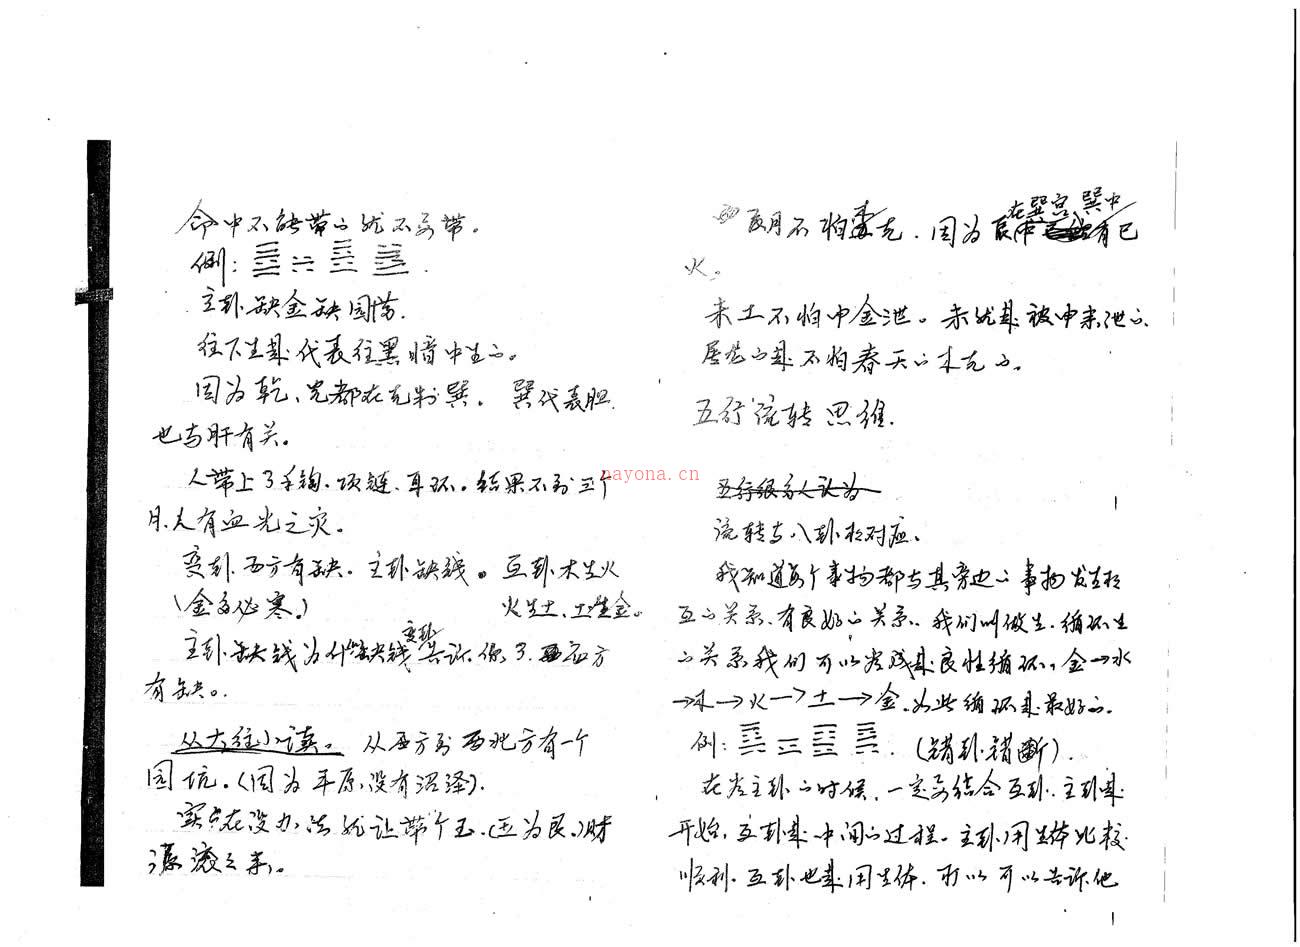 命中不能带的就不要带。
例:
主卦缺金缺园满.
往下生是代表往黑暗中生的。
因为乾、兑都在克制巽。巽代表胆.
也与肝有关。
人带上了手镯、项链、耳环。结果不到三个
月.人有血光之灾。
变卦西方有缺.主卦缺钱。互卦木生火
(金多必寒。) 火生土、土生金。
主卦缺钱为什缺钱变卦告诉你了.西方
有缺。
从大往小读。从西方到西北方有一个
园坑。(因为平原没有沼泽).
实在没办法就让带个玉.(玉为艮。)财
源滚之来。
月不怕克.因为在巽宫巽中有巳
火。
未土不怕申金泄。未就是被申来泄的.
的是不怕春天的木克的。
五行流转思维.
nayona.cn
五行很多人认为
流转与八卦相对应。
我知道每个事物都与其旁边的事物发生相
互的关系.有良好的关系.我们叫做生.循环生
的关系我们可以发现是良性循环。金→水
→木→火→土→金.如此循环是最好的.
例: (错卦错断).
在发主卦的时候.一定要结合互卦.主卦是
开始,互卦是中间的过程.主卦用生体比较
顺利.互卦也是用生体.所以可以告诉他